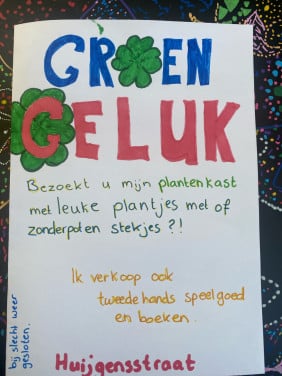 GROEN
GELUK
Bezoekt u mijn plantenkast
met leuke plantjes met of
zonder poten stekjes?!
Ik verkoop ook
tweede hands speelgoed
en boeken.
bij slecht weer
gesloten.
Huijgensstraat